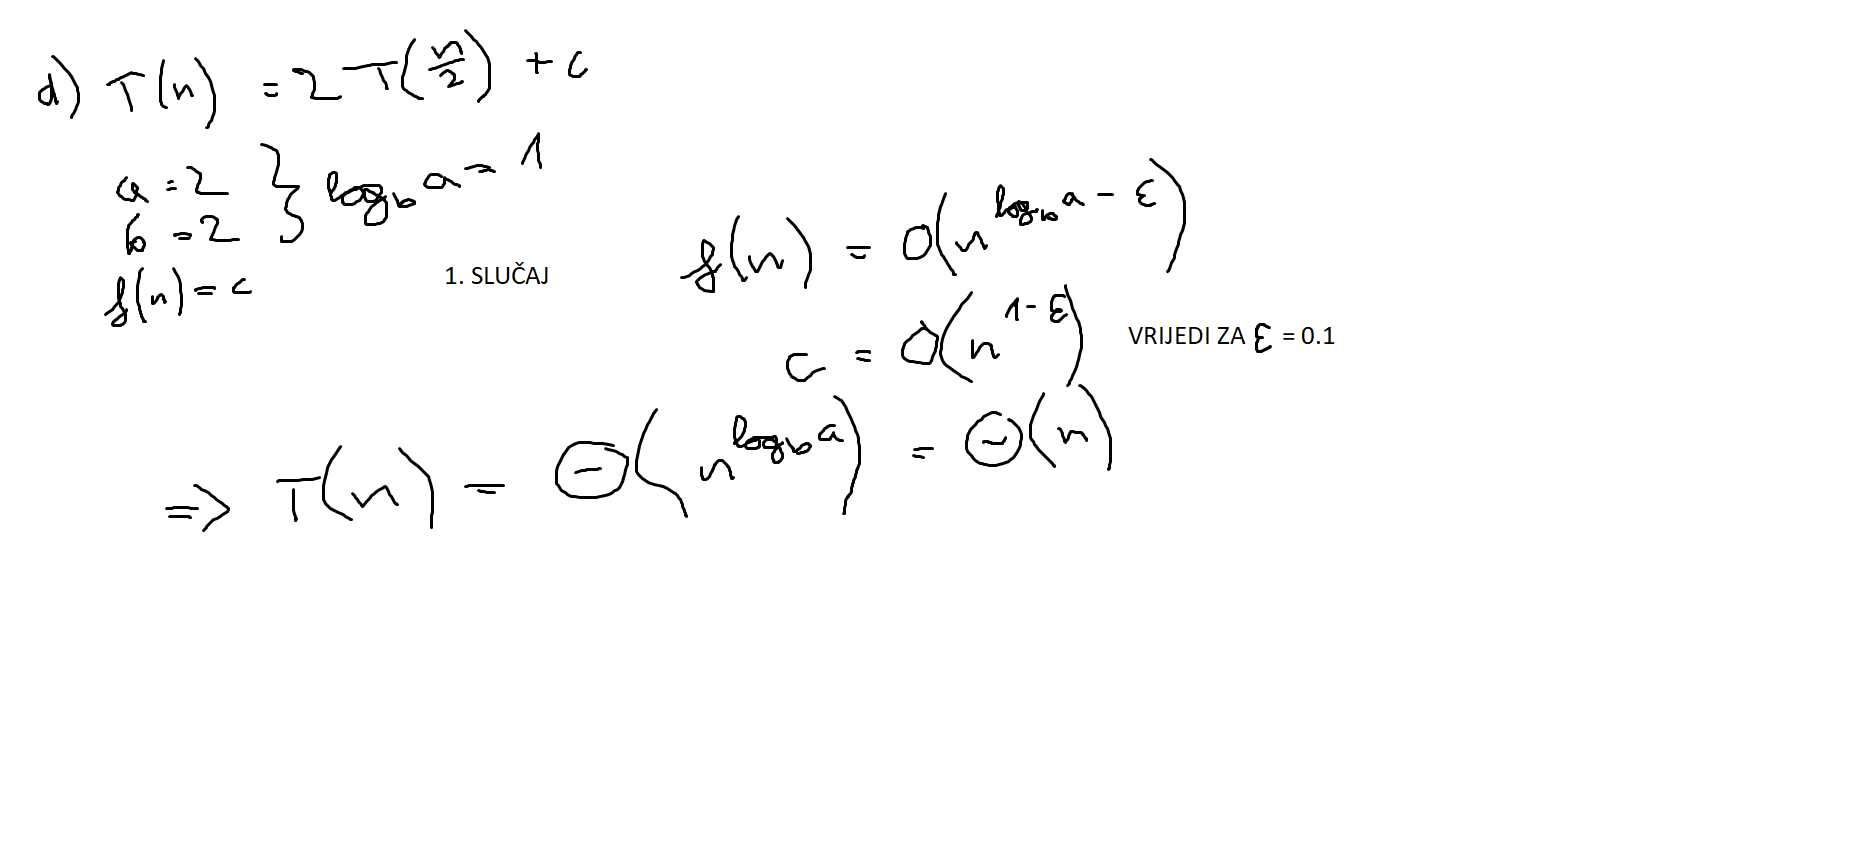 d) T(n) = 2T(n/2) + c
a = 2
b = 2 } log_b a = 1
f(n) = c
1. SLUČAJ
f(n) = O(n^(log_b a - ε))
c = O(n^(1-ε)) VRIJEDI ZA ε = 0.1
=> T(n) = Θ(n^(log_b a)) = Θ(n)